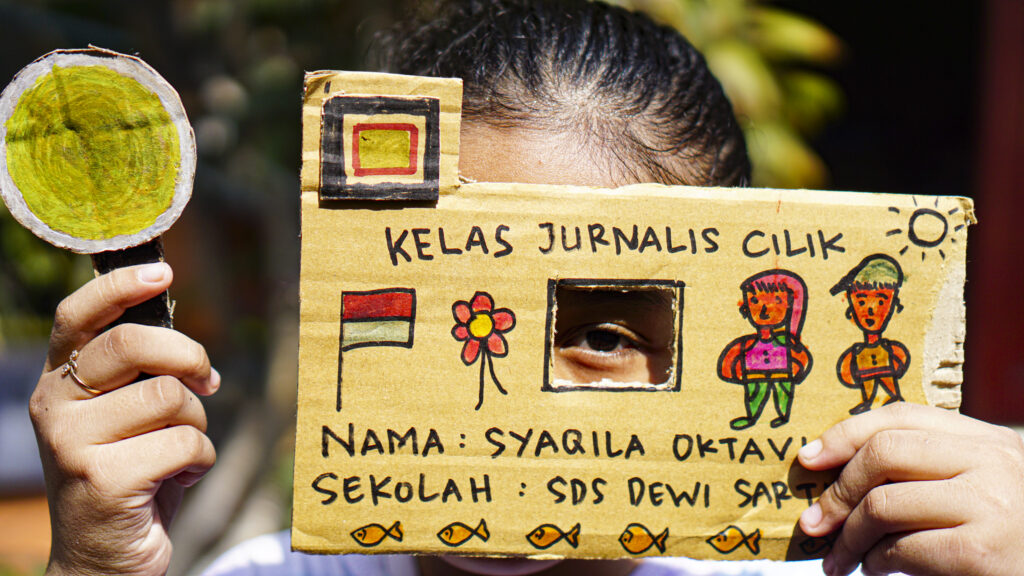 KELAS JURNALIS CILIK
NAMA : SYAQILA
SEKOLAH : SDS DEWI